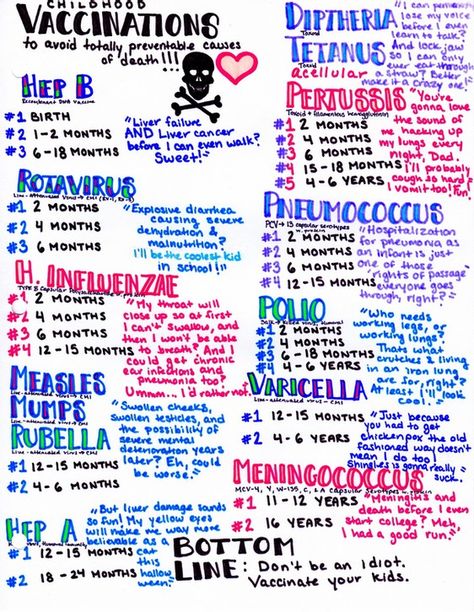 CHILDHOOD
VACCINATIONS
to avoid totally preventable causes
of death!!!
HEP B
Recombinant DNA Vaccine
#1 BIRTH
#2 1-2 MONTHS
#3 6-18 MONTHS
"Liver failure
AND Liver cancer
before I can even walk?
Sweet!"
ROTAVIRUS
#1 2 MONTHS
#2 4 MONTHS
#3 6 MONTHS
"Explosive diarrhea
causing severe
dehydration &
malnutrition?
I'll be the coolest kid
in school!"
H. INFLUENZAE
TYPE B Capsular
#1 2 MONTHS
#2 4 MONTHS
#3 6 MONTHS
#4 12-15 MONTHS
"My throat will
close up so at first
I can't swallow, and
then I won't be able
to breath? And I
could get chronic
ear infections and
pneumonia too?
Ummm... I'd rather not.
MEASLES
Live-attenuated virus
MUMPS
Live-attenuated virus
RUBELLA
Live-attenuated virus
#1 12-15 MONTHS
#2 4-6 MONTHS
"Swollen cheeks,
swollen testicles, and
the possibility of
severe mental
deterioration years
later? Eh, could
be worse."
HEP A
#1 12-15 MONTHS
#2 18-24 MONTHS
"But liver damage sounds
so fun! My yellow eyes
will make me way more
believable as a
cat
this
hallow
ween."
DIPTHERIA
Toxoid
TETANUS
Toxoid
acellular
PERTUSSIS
Toxoid + filamentous hemagglutinin
#1 2 MONTHS
#2 4 MONTHS
#3 6 MONTHS
#4 15-18 MONTHS
#5 4-6 YEARS
"I can permanently
lose my voice
before I ever
learn to talk?
And lock jaw
so I can only
ever eat through
a straw? Better
make it a crazy one!
"You're
gonna love
the sound of
me hacking up
my lungs every
night, Dad.
I'll probably
cough so hard
I vomit too! Fun!
PNEUMOCOCCUS
PCV-13 capsular serotypes
#1 2 MONTHS
#2 4 MONTHS
#3 6 MONTHS
#4 12-15 MONTHS
"Hospitalization
for pneumonia as
an infant is just
one of those
"rights of passage"
everyone goes
through, right?"
POLIO
#1 2 MONTHS
#2 4 MONTHS
#3 6-18 MONTHS
#4 4-6 YEARS
"Who needs
working legs, or
working lungs?
Thats what
crutches & living
in an iron lung
are for, right?
At least I'll look
cool."
VARICELLA
Live-attenuated virus
#1 12-15 MONTHS
#2 4-6 YEARS
"Just because
you had to get
chickenpox the old
fashioned way doesn't
mean I do too!
Shingles is gonna really
suck.
MENINGOCOCCUS
MCV-4, Y, W-135, C, & A capsular serotypes
#1 11-12 YEARS
#2 16 YEARS
"Meningitis and
death before I even
start college? Meh,
I had a good run."
BOTTOM
LINE: Don't be an idiot.
Vaccinate your kids.